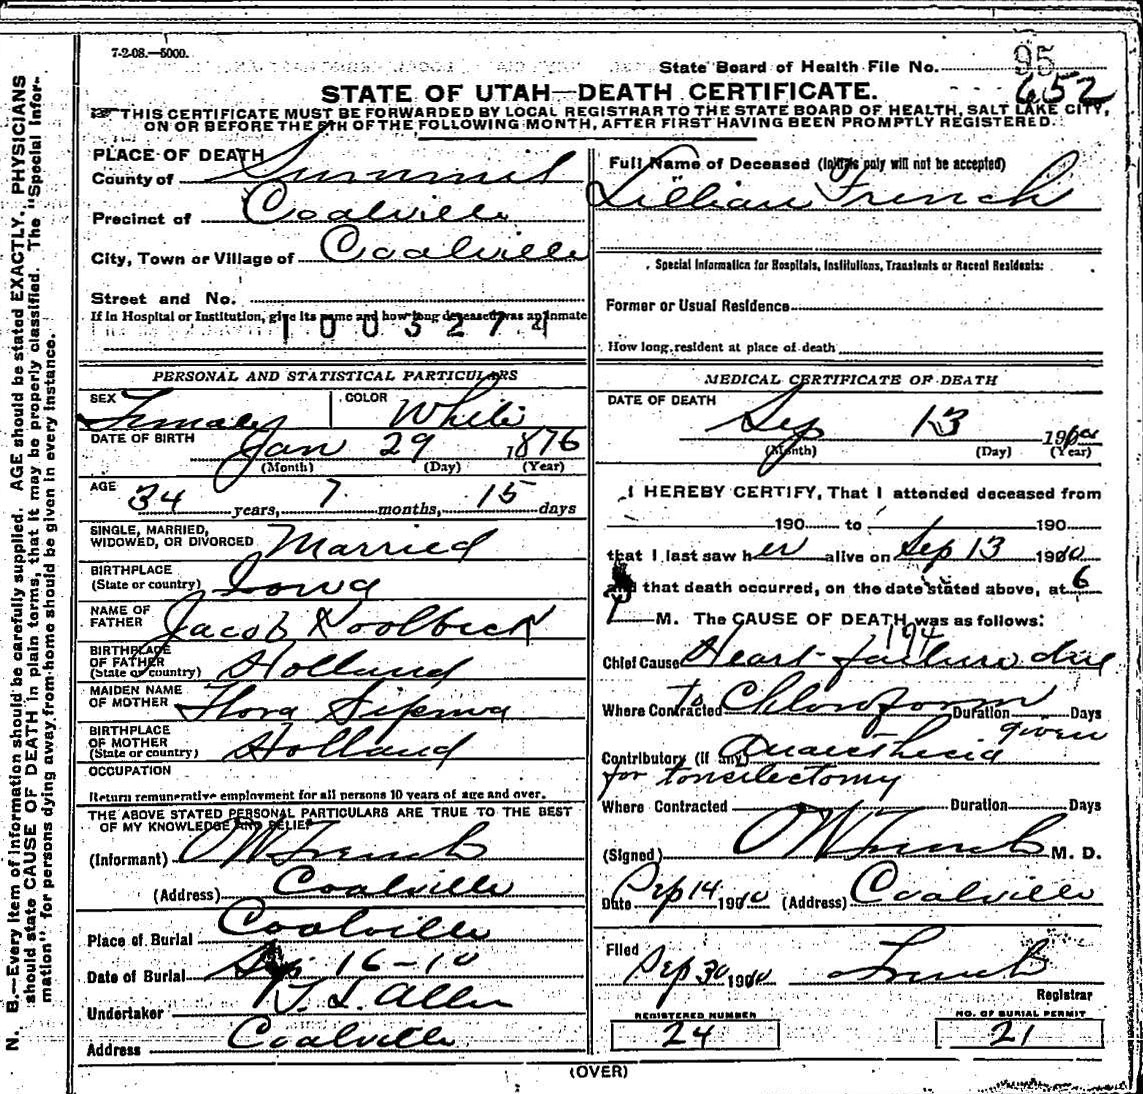 7-2-08.—5000.
State Board of Health File No. 95
652
STATE OF UTAH—DEATH CERTIFICATE.
THIS CERTIFICATE MUST BE FORWARDED BY LOCAL REGISTRAR TO THE STATE BOARD OF HEALTH, SALT LAKE CITY,
ON OR BEFORE THE 5TH OF THE FOLLOWING MONTH, AFTER FIRST HAVING BEEN PROMPTLY REGISTERED.
N. B.—Every item of information should be carefully supplied. AGE should be stated EXACTLY. PHYSICIANS
should state CAUSE OF DEATH in plain terms, that it may be properly classified. The "Special Infor-
mation" for persons dying away from home should be given in every instance.
PLACE OF DEATH
County of Summit
Precinct of Coalville
City, Town or Village of Coalville
Street and No.
If in Hospital or Institution, give its name and how long deceased was an inmate
1003274
PERSONAL AND STATISTICAL PARTICULARS
SEX Female COLOR White
DATE OF BIRTH Jan 29 1876
(Month) (Day) (Year)
AGE 34 years, 7 months, 15 days
SINGLE, MARRIED,
WIDOWED, OR DIVORCED Married
BIRTHPLACE
(State or country) Iowa
NAME OF
FATHER Jacob
BIRTHPLACE
OF FATHER
(State or country) Holland
MAIDEN NAME
OF MOTHER Flora
BIRTHPLACE
OF MOTHER
(State or country) Holland
OCCUPATION
Return remunerative employment for all persons 10 years of age and over.
THE ABOVE STATED PERSONAL PARTICULARS ARE TRUE TO THE BEST
OF MY KNOWLEDGE AND BELIEF
(Informant) O W French
(Address) Coalville
Place of Burial Coalville
Date of Burial Sep 16-10
Undertaker T. I. Allen
Address Coalville
Full Name of Deceased (Initials only will not be accepted)
Lillian French
Special Information for Hospitals, Institutions, Transients or Recent Residents:
Former or Usual Residence
How long resident at place of death
MEDICAL CERTIFICATE OF DEATH
DATE OF DEATH
Sep 13 1910
(Month) (Day) (Year)
I HEREBY CERTIFY, That I attended deceased from
190 to 190
that I last saw her alive on Sep 13 1910
and that death occurred, on the date stated above, at 6
P M. The CAUSE OF DEATH was as follows:
194
Chief Cause Heart failure due
Where Contracted to Chloroform Duration Days
given
Contributory (if any) Anaesthecia
for tonsilectomy
Where Contracted Duration Days
(Signed) O W French M. D.
Date Sep 14 1910 (Address) Coalville
Filed Sep 30 1910 French
Registrar
REGISTERED NUMBER
24
NO. OF BURIAL PERMIT
21
(OVER)